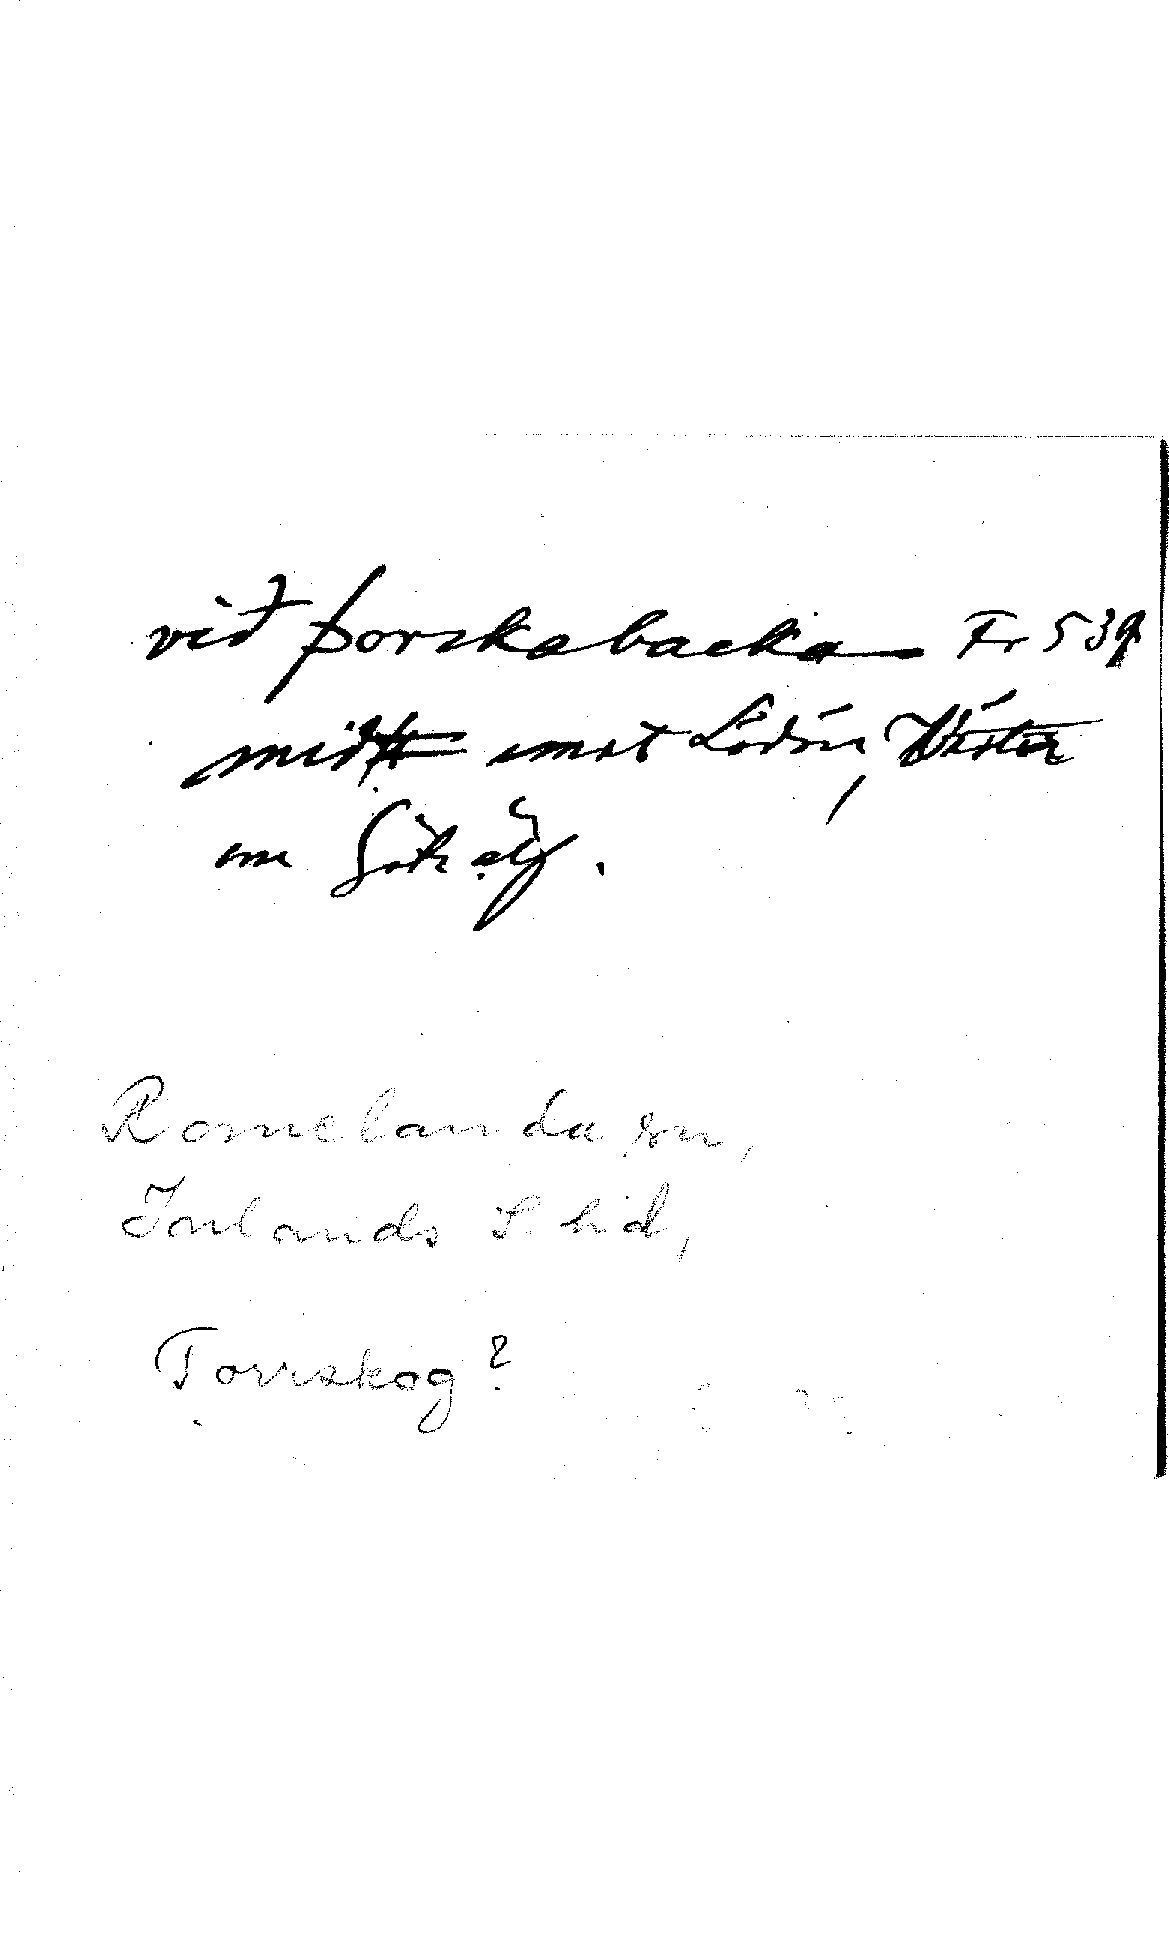 við þorskabacka Fr 539
midt emot Lödöse, Väster
om Göta älf.
Romelanda sn,
Inlands S. hd,
Torrskog?